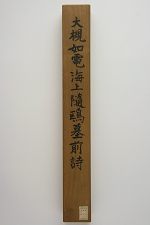 大槻如電海上随鴎墓前詩